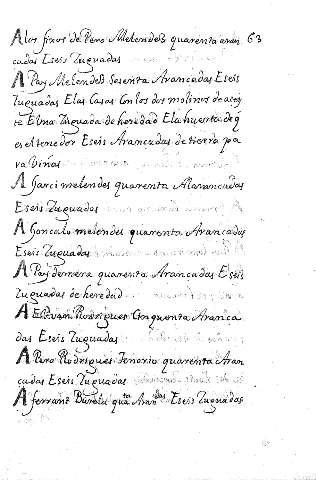 A los fixos de Pero Melendes quarenta aran 63
cadas Eseis Zuguadas
A Pay Melendes Sesenta Arancadas Eseis
Zuguadas Elas Casas Con los dos molinos de azey
te Euna Zuguada de heredad Ela huerta de q
es eltenedor Eseis Arancadas de tierra pa
ra Viñas
A Garci melendes quarenta Alarancadas
Eseis Zuguadas
A Goncalo melendes quarenta Arancadas
Eseis Zuguadas
A Pay quarenta Arancadas Eseis
Zuguadas de heredad
A Rodrigues Cinquenta Aranca
das Eseis Zuguadas
A Pero Rodrigues Tenorio quarenta Aran
cadas Eseis Zuguadas
A ferrant qta Arandas Eseis Zuguadas